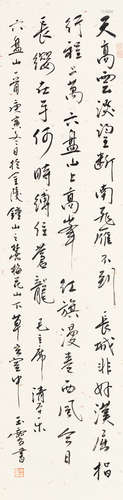 天高雲淡望斷南飛雁不到長城非好漢屈指
行程二萬六盤山上高峯紅旗漫卷西風今日
長纓在手何時縛住蒼龍毛主席清平樂
六盤山一首庚寅冬日於金陵鍾山之麓梅花山下草堂雪中
玉雪書